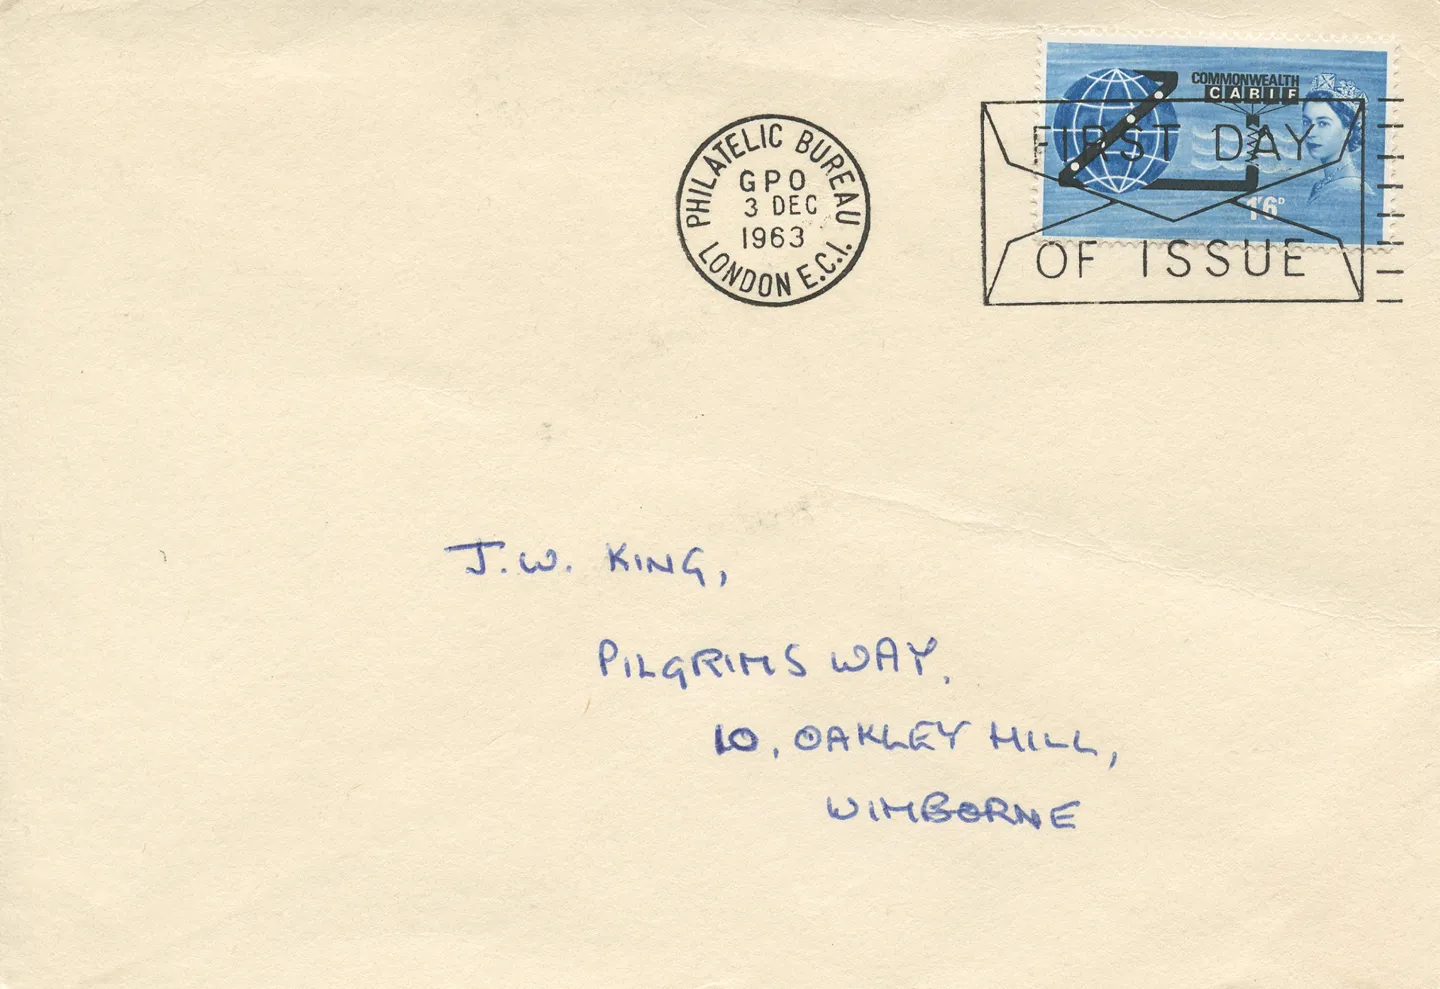 COMMONWEALTH
CABLE
1'6D
PHILATELIC BUREAU
GPO
3 DEC
1963
LONDON E.C.1.
FIRST DAY
OF ISSUE
J.W. KING,
PILGRIMS WAY,
10, OAKLEY HILL,
WIMBORNE